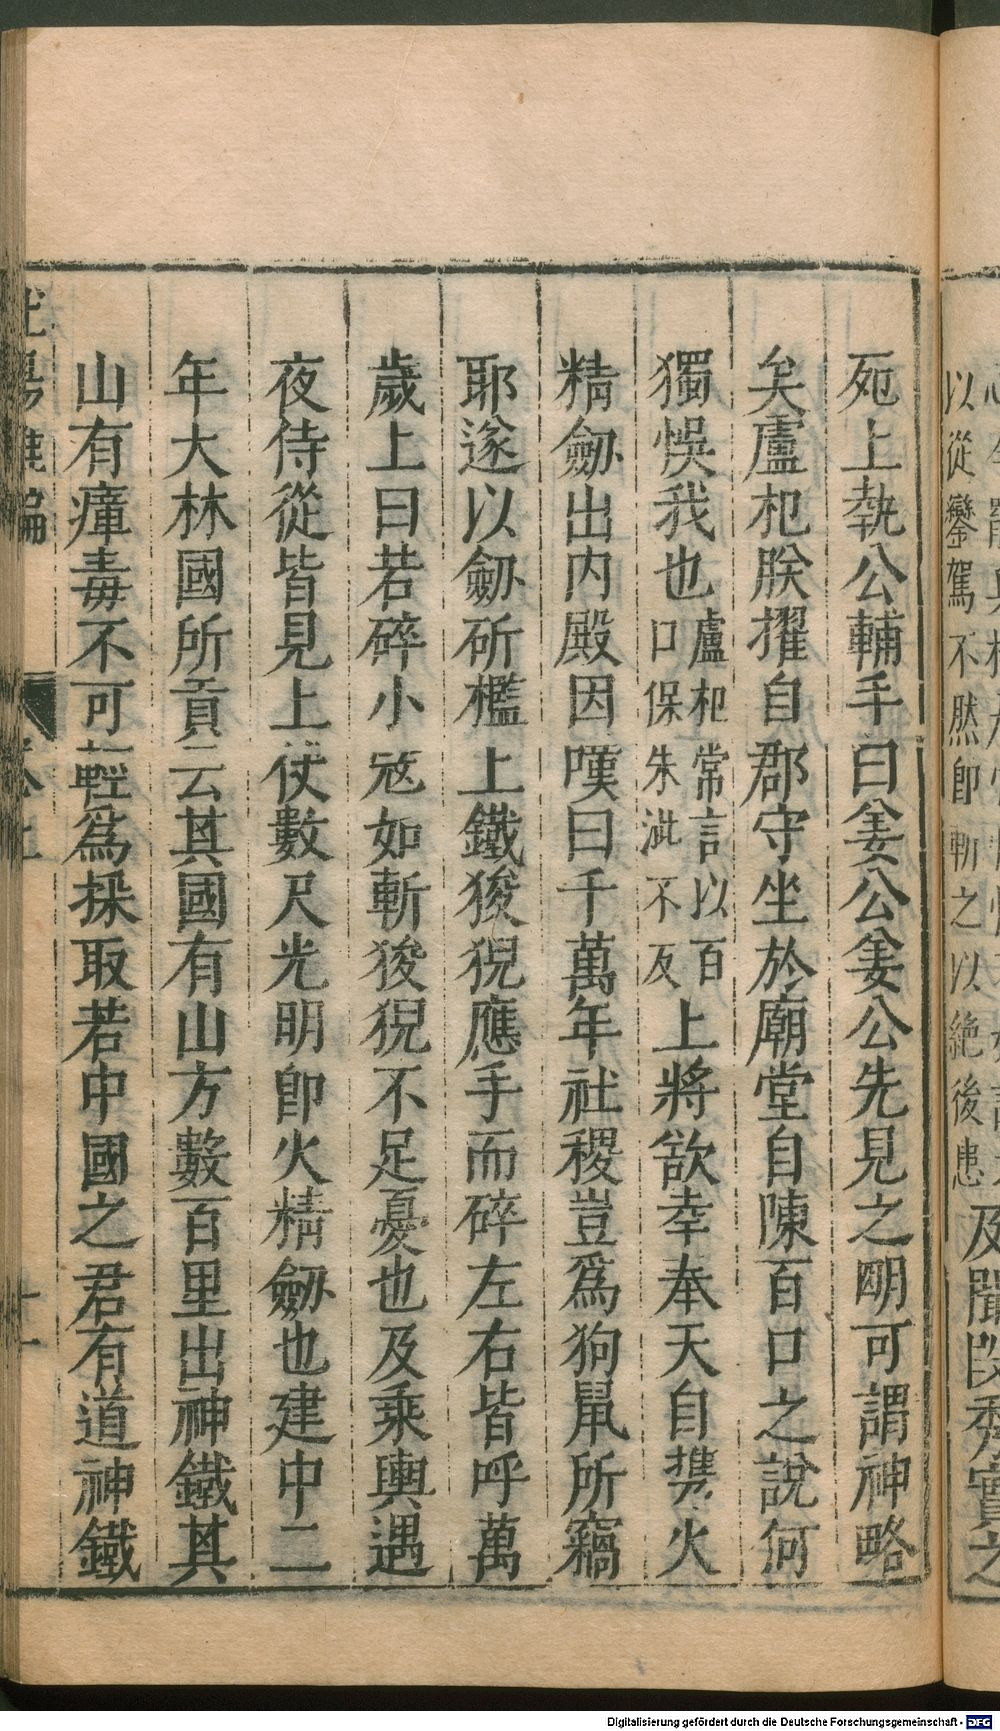 以從鑾駕不然卽斬之以絶後患及聞段秀實之
死上執公輔手曰姜公姜公先見之明可謂神略
矣盧杞朕擢自郡守坐於廟堂自陳百口之說何
獨悞我也盧杞常言以百口保朱泚不反上將欲幸奉天自攜火
精劒出內殿因嘆曰千萬年社稷豈爲狗鼠所竊
耶遂以劒斫檻上鐵狻猊應手而碎左右皆呼萬
歲上曰若碎小寇如斬狻猊不足憂也及乘輿遇
夜侍從皆見上仗數尺光明卽火精劒也建中二
年大林國所貢云其國有山方數百里出神鐵其
山有瘴毒不可輕爲採取若中國之君有道神鐵
卷上
十一
Digitalisierung gefördert durch die Deutsche Forschungsgemeinschaft - DFG